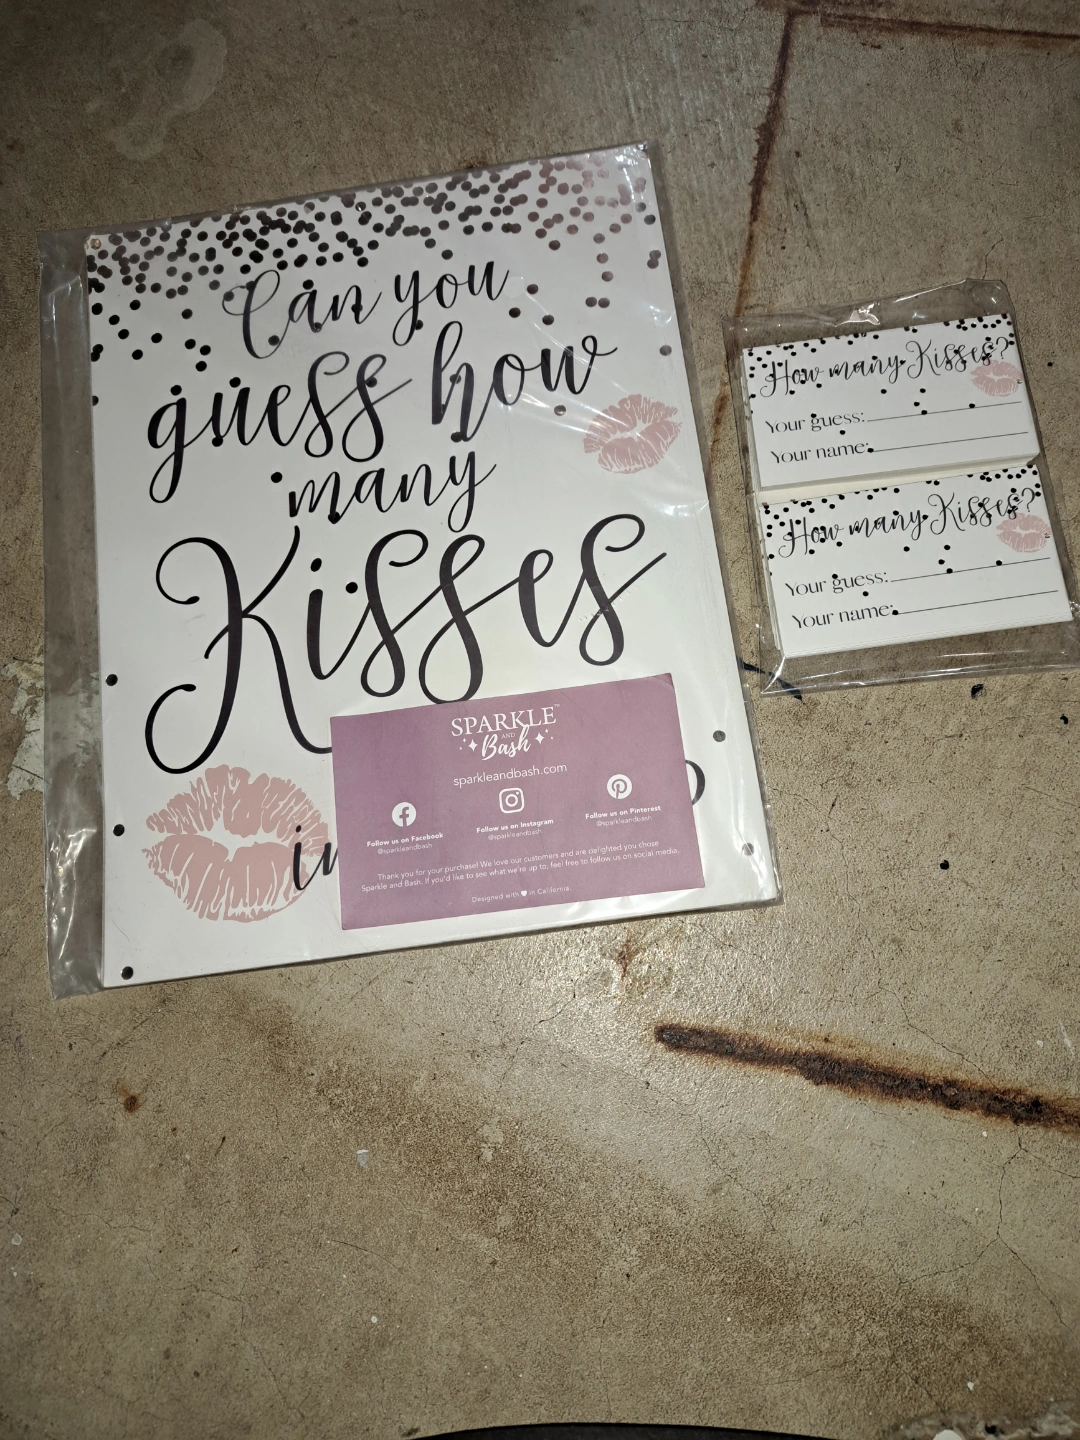 Can you
guess how
many
Kisses
in
SPARKLE
AND
Bash
™
sparkleandbash.com
Follow us on Facebook
@sparkleandbash
Follow us on Instagram
@sparkleandbash
Follow us on Pinterest
@sparkleandbash
Thank you for your purchase! We love our customers and are delighted you chose
Sparkle and Bash. If you'd like to see what we're up to, feel free to follow us on social media.
Designed with ♥ in California.
How many Kisses?
Your guess:
Your name:
How many Kisses?
Your guess:
Your name: